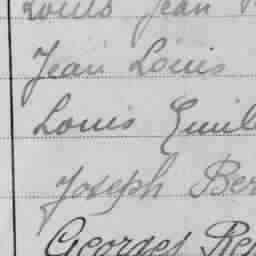 Louis Jean
Jean Louis
Louis Emil
Joseph Ber
Georges Re